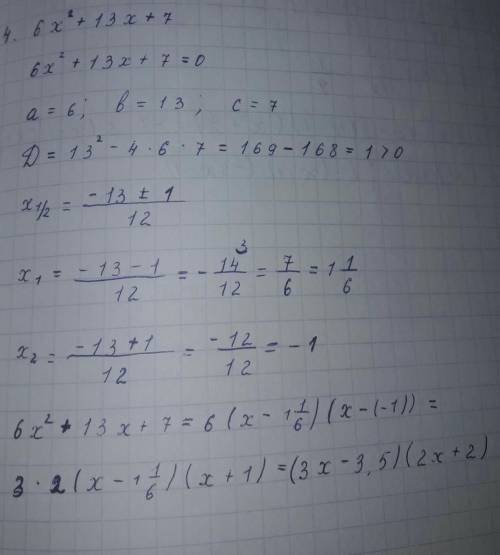 4. 6x² + 13x + 7
6x² + 13x + 7 = 0
a = 6; b = 13; c = 7
D = 13² - 4 · 6 · 7 = 169 - 168 = 1 > 0
x₁/₂ = (-13 ± 1)/12
x₁ = (-13 - 1)/12 = - 14/12 = 7/6 = 1 1/6
x₂ = (-13 + 1)/12 = -12/12 = -1
6x² + 13x + 7 = 6 (x - 1 1/6) (x - (-1)) =
3 · 2 (x - 1 1/6) (x + 1) = (3x - 3,5) (2x + 2)